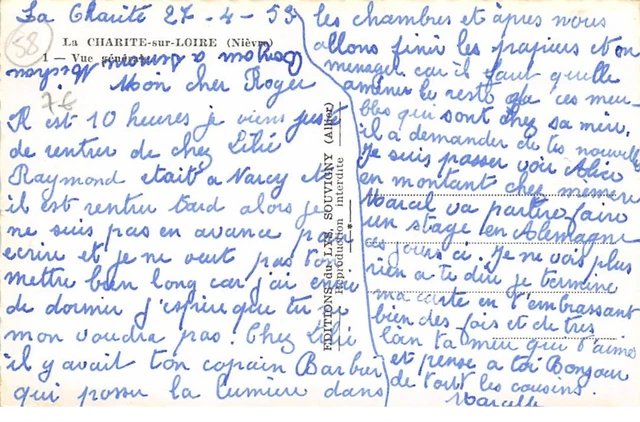 La Charité 27-4-59
58
La CHARITE-sur-LOIRE (Nièvre)
1 - Vue générale
Mon cher Roger
7€
Il est 10 heures je viens juste
de rentrer de chez Lilié
Raymond etait a Narcy et
il est rentrer tard alors je
ne suis pas en avance pour
ecrire et je ne veut pas t'en
mettre bien long car j'ai envie
de dormir j'espère que tu ne
mon voudra pas. Chez Lilié
il y avait ton copain Barbier
qui posser la lumière dans
EDITIONS du LYS, SOUVIGNY (Allier)
Reproduction interdite
les chambres et après nous
allons finir les papiers et on
menager car il faut qu'elle
amener le reste de ces meu-
bles qui sont chez sa mère.
il a demander de tes nouvelle
Je suis passer voir Alice
en montant chez mémère
Marcel va partire faire
un stage en Alemagne
ces jours ci. Je ne vois plus
rien a te dire je termine
ma carte en t'embrassant
bien des fois et de très
loin ta meu qui t'aimes
et pense a toi Bonjour
de tout les cousins.
Marcelle